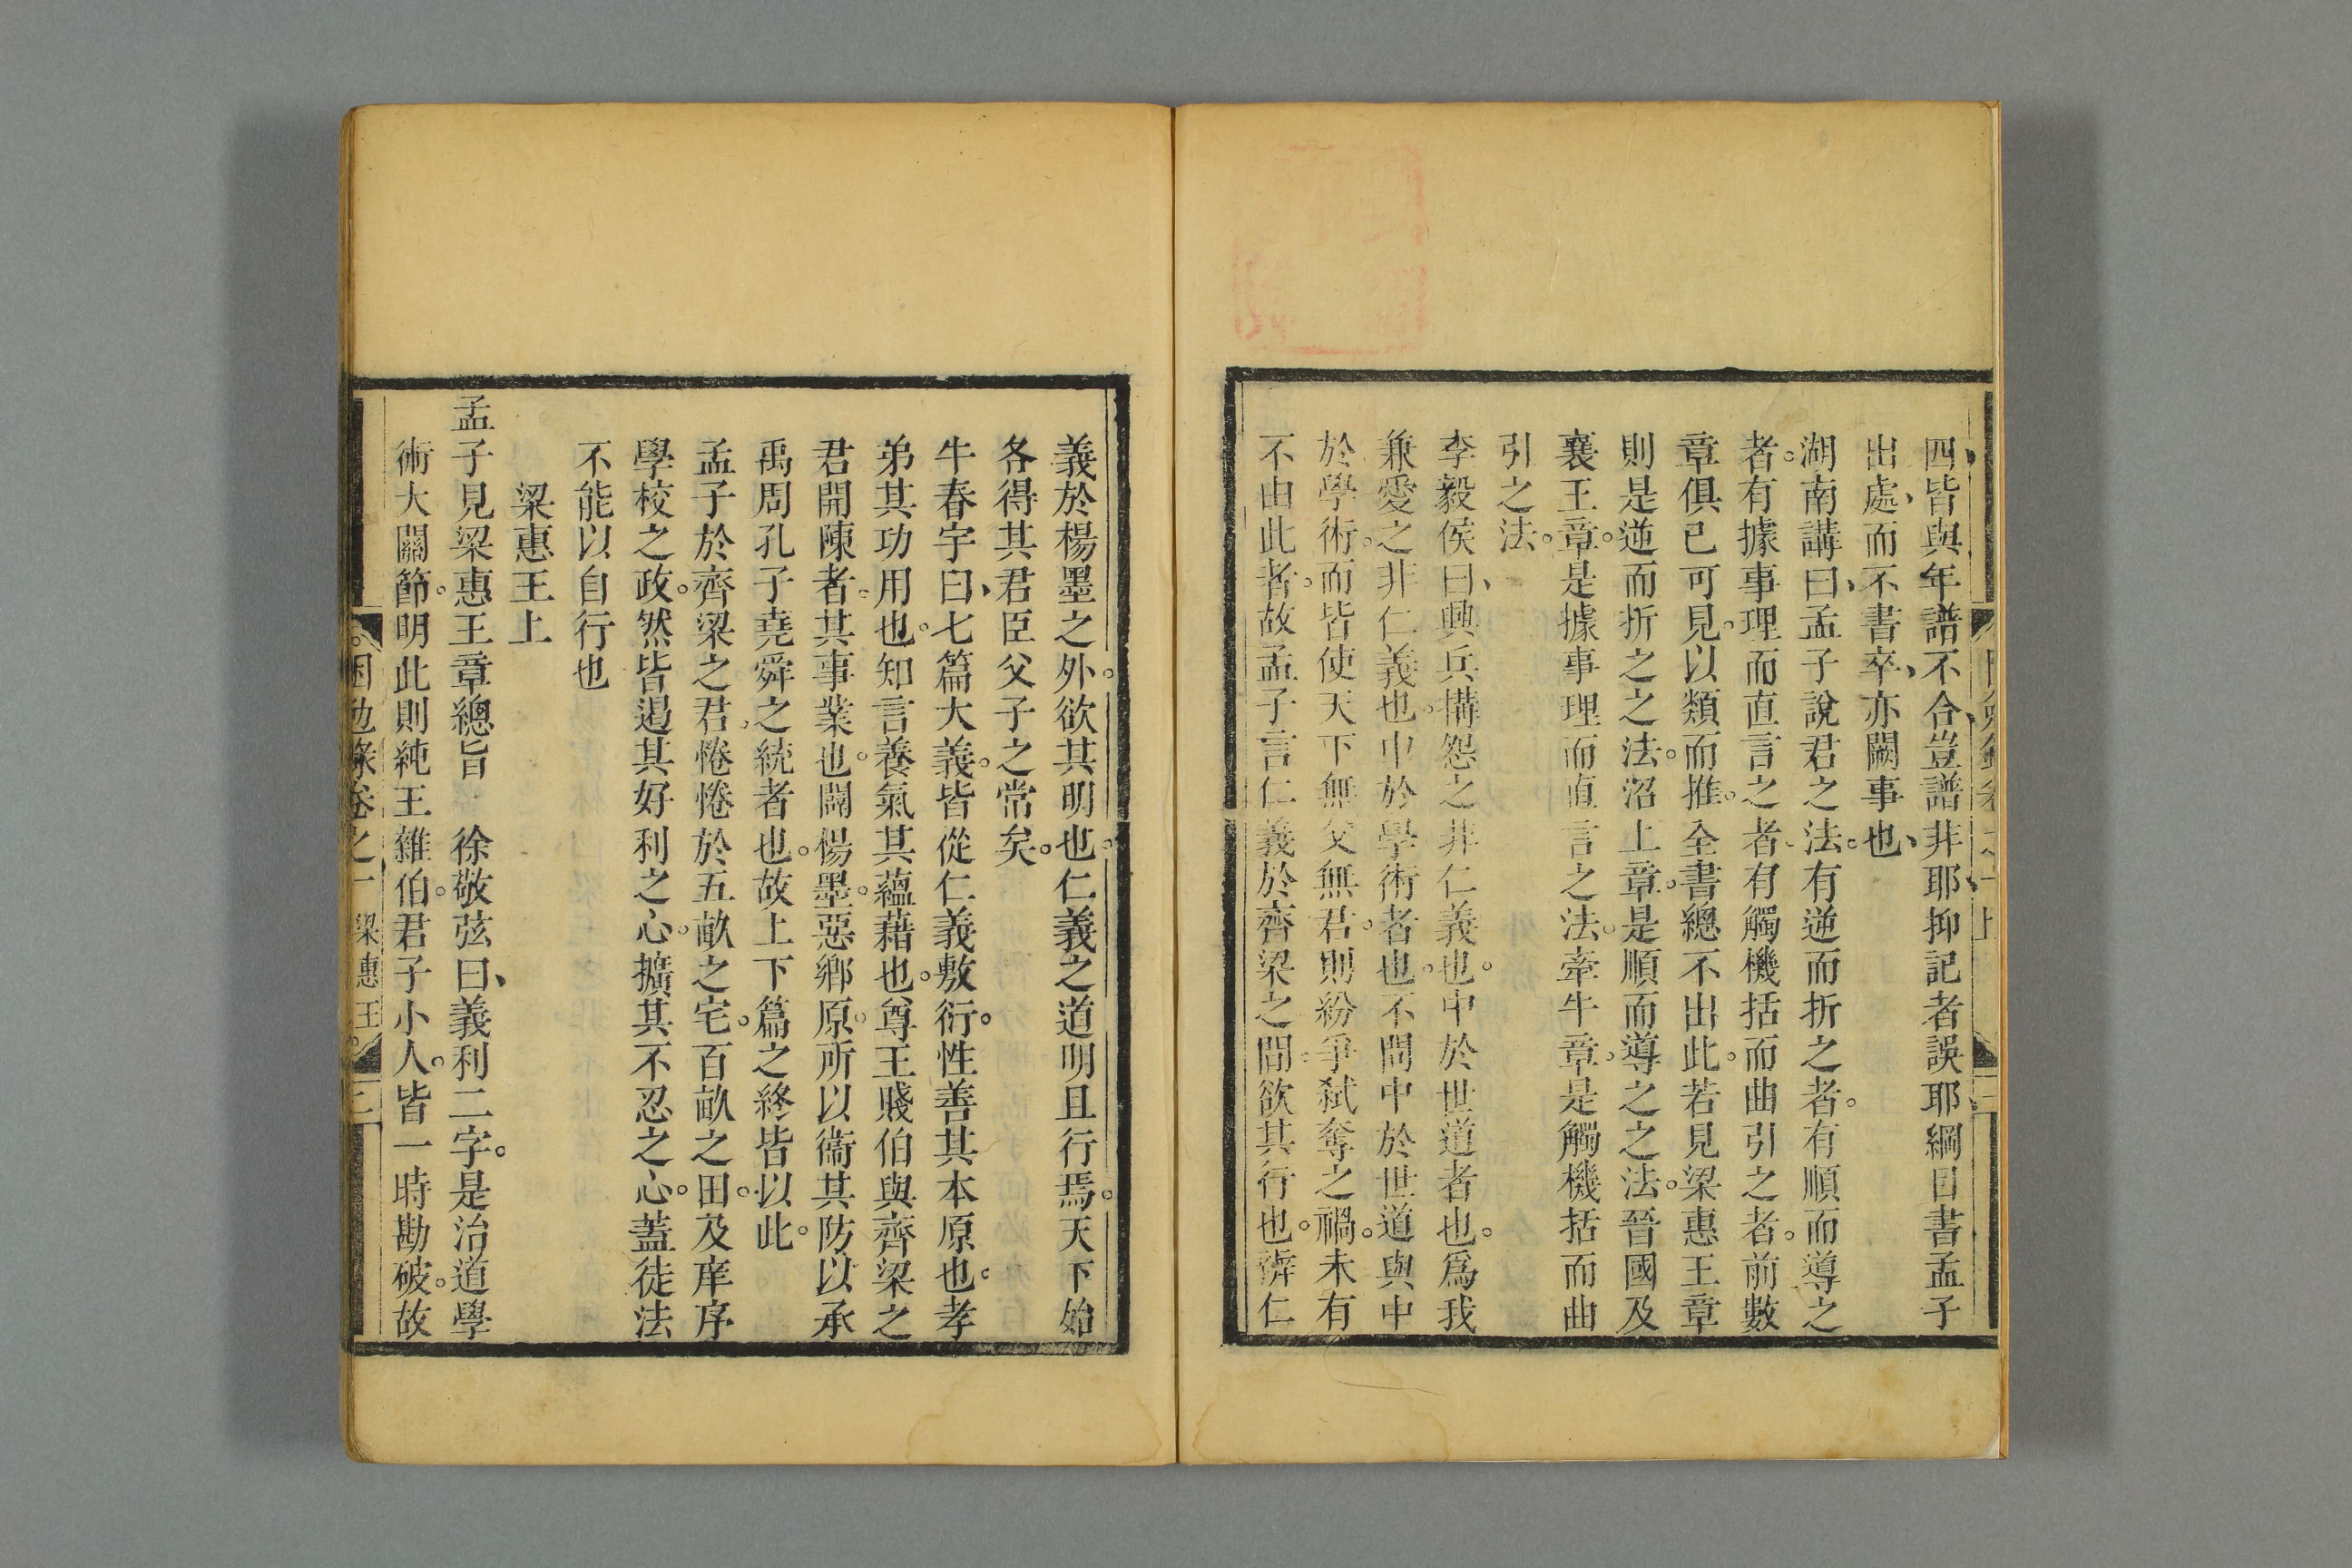 四皆與年譜不合豈譜非耶抑記者誤耶綱目書孟子
出處而不書卒亦闕事也
湖南講曰孟子說君之法有逆而折之者有順而導之
者有據事理而直言之者有觸機括而曲引之者前數
章俱已可見以類而推全書總不出此若見梁惠王章
則是逆而折之之法沼上章是順而導之之法晉國及
襄王章是據事理而直言之法牽牛章是觸機括而曲
引之法
李毅侯曰興兵搆怨之非仁義也中於世道者也為我
兼愛之非仁義也中於學術者也不問中於世道與中
於學術而皆使天下無父無君則紛爭弒奪之禍未有
不由此者故孟子言仁義於齊梁之間欲其行也辨仁
義於楊墨之外欲其明也仁義之道明且行焉天下始
各得其君臣父子之常矣
牛春宇曰七篇大義皆從仁義敷衍性善其本原也孝
弟其功用也知言養氣其蘊藉也尊王賤伯與齊梁之
君開陳者其事業也闢楊墨惡鄉原所以衞其防以承
禹周孔子堯舜之統者也故上下篇之終皆以此
孟子於齊梁之君惓惓於五畝之宅百畝之田及庠序
學校之政然皆遏其好利之心擴其不忍之心蓋徒法
不能以自行也
梁惠王上
孟子見梁惠王章總旨 徐敬弦曰義利二字是治道學
術大關節明此則純王雜伯君子小人皆一時勘破故
困勉錄卷之一 梁惠王 二